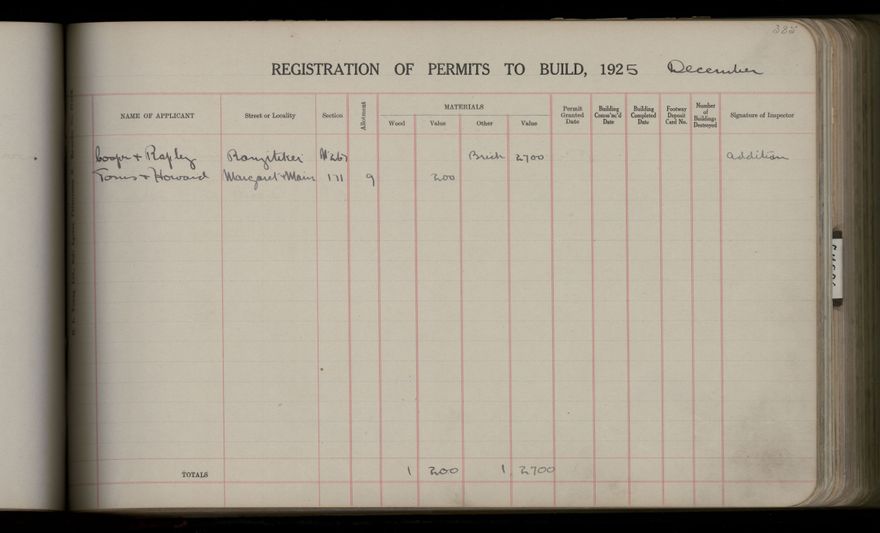 385
REGISTRATION OF PERMITS TO BUILD, 1925 December
NAME OF APPLICANT Street or Locality Section Allotment MATERIALS Permit Granted Date Building Comm'nc'd Date Building Completed Date Footway Deposit Card No. Number of Buildings Destroyed Signature of Inspector
Wood Value Other Value
Cooper & Rapley Rangitikei Brick 2700 addition
Toms & Howard Margaret & Main 171 9 200
TOTALS 1 200 1 2700